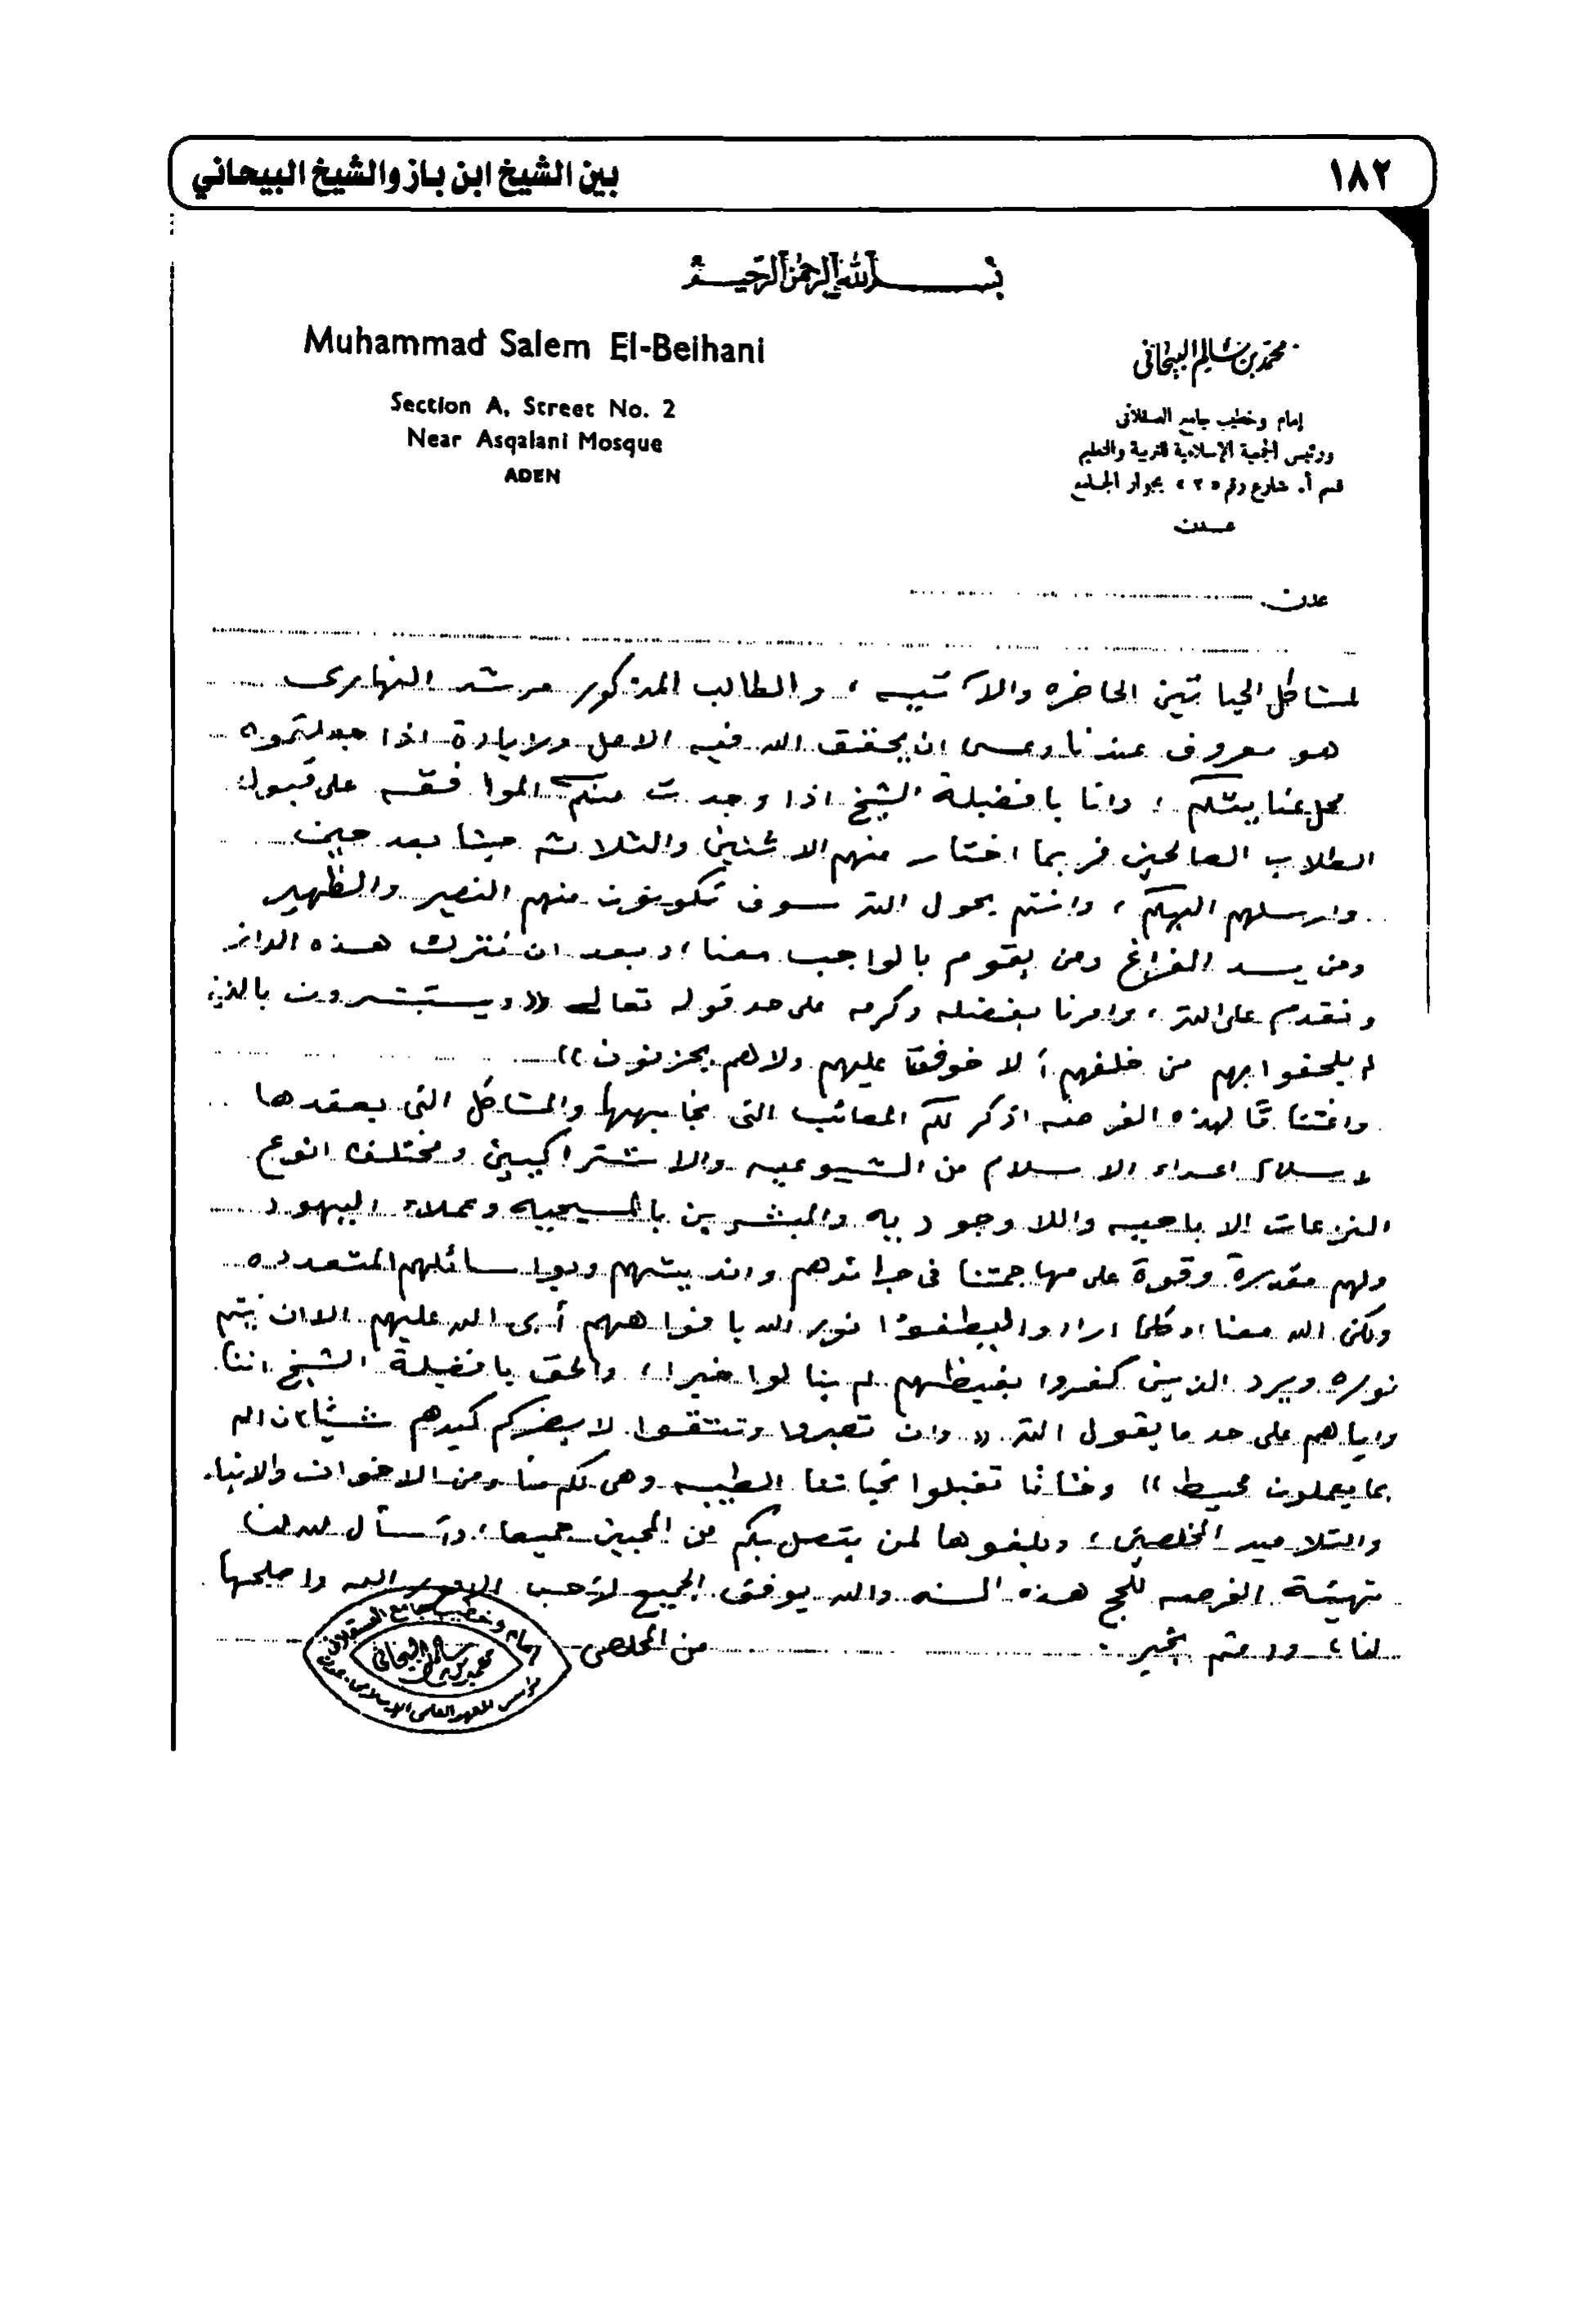 ١٨٢
بين الشيخ ابن باز والشيخ البيحاني
بسم الله الرحمن الرحيم
Muhammad Salem El-Beihani
Section A, Street No. 2
Near Asqalani Mosque
ADEN
محمد بن سالم البيحاني
إمام وخطيب جامع العسقلاني
ورئيس الجمعية الإسلامية للتربية والتعليم
قسم أ. شارع رقم «٢» بجوار الجامع
عدن
عدن
لمشاكل الحياتين الحاضره والآتيه ، والطالب المذكور مرشد النهاري
هو معروف عندنا وعسى ان يحقق الله فيه الامل وزيادة اذا جعلتموه
محل عنايتكم ، وانا يا فضيلة الشيخ اذا وجدت منكم الموافقه على قبول
الطلاب الصالحين فربما اختار منهم الاثنين والثلاثه حينا بعد حين
وارسلهم اليكم ، وانتم بحول الله سوف تكونون منهم النصير والظهير
ومن يسد الفراغ ومن يقوم بالواجب معنا ، وبعد ان نترك هذه الدار
ونقدم على الله ، وامرنا بفضله وكرمه على حد قوله تعالى « ويستبشرون بالذين
لم يلحقوا بهم من خلفهم ألا خوف عليهم ولا هم يحزنون »
وافتناتا لهذه الفرصه اذكر لكم المصائب التي نجابهها والمشاكل التي يعقدها
لاسلام اعداء الاسلام من الشيوعيه والاشتراكيين ومختلف انوع
النزعات الاباحيه واللا وجوديه والمبشرين بالمسيحيه وعملاء اليهود
ولهم مقدرة وقوة على مهاجمتنا في جرائدهم وانديتهم وبوا سائلهم المتعدده
ولكن الله معنا وكلما ارادوا ليطفئوا نور الله بافواههم أبى الله عليهم الا ان يتم
نوره ويرد الذين كفروا بغيظهم لم ينالوا خيرا ، والحق يا فضيلة الشيخ اننا
واياهم على حد ما يقول الله « وان تصبروا وتتقوا لا يضركم كيدهم شيئا ان الله
بما يعملون محيط » وختاما تقبلوا تحياتنا الطيبه وهي لكم منا ومن الاخوان والابناء
والتلاميد المخلصين ، وبلغوها لمن يتصل بكم من المحبين جميعا ، ونسأل الله لنا
تهيئة الفرصه للحج هذه السنه والله يوفق الجميع لأحب الامور اليه واصلحها
لنا ، ودمتم بخير .
من المخلص
إمام وخطيب جامع العسقلاني
محمد بن سالم البيحاني
مؤسس المعهد العلمي الاسلامي